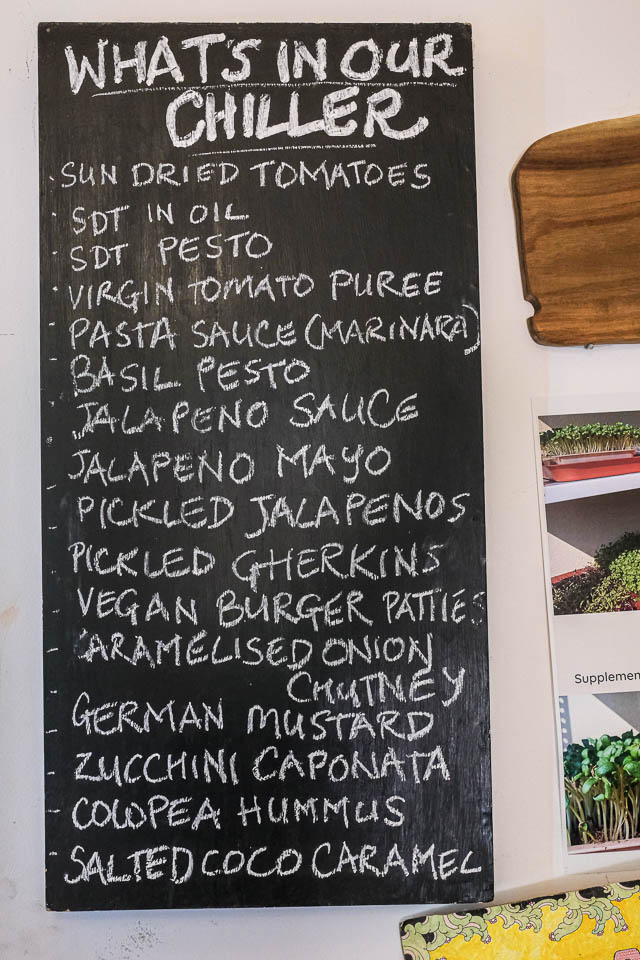 WHAT'S IN OUR
CHILLER
SUN DRIED TOMATOES
SDT IN OIL
SDT PESTO
VIRGIN TOMATO PUREE
PASTA SAUCE (MARINARA)
BASIL PESTO
JALAPENO SAUCE
JALAPENO MAYO
PICKLED JALAPENOS
PICKLED GHERKINS
VEGAN BURGER PATTIES
CARAMELISED ONION
CHUTNEY
GERMAN MUSTARD
ZUCCHINI CAPONATA
COWPEA HUMMUS
SALTED COCO CARAMEL
Supplemen